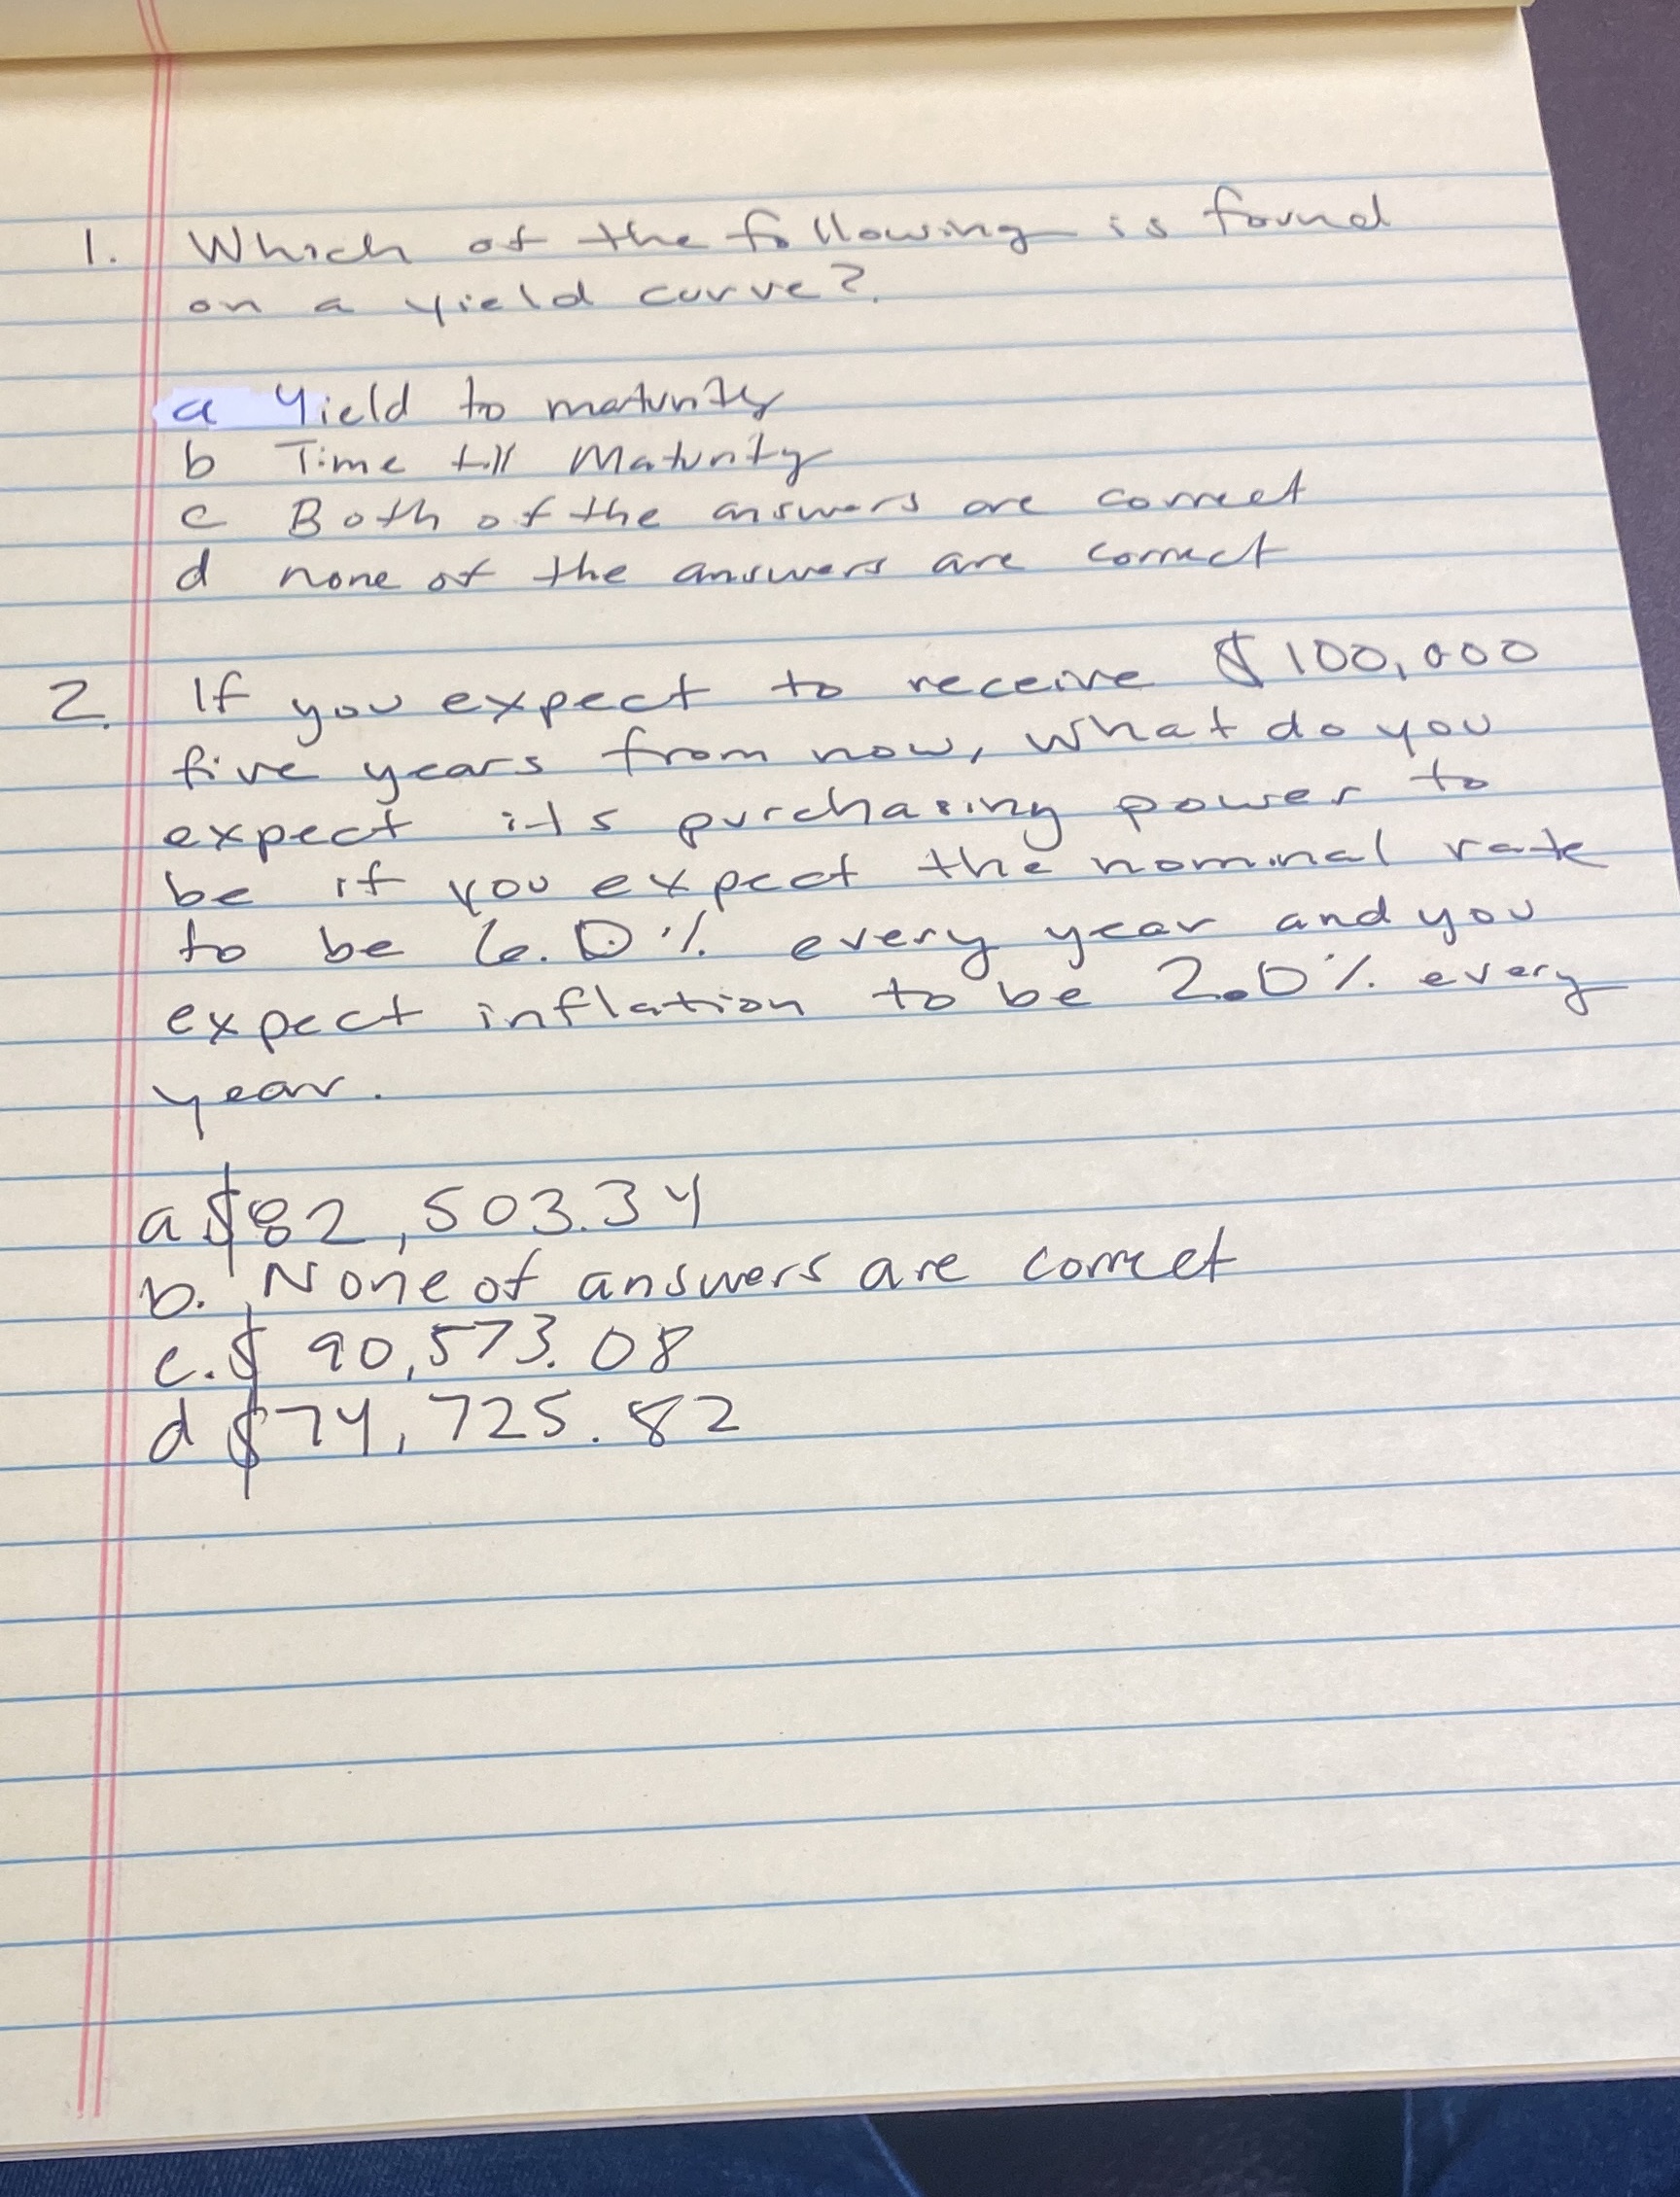 1. Which of the following is found
on a yield curve?
a Yield to maturity
b Time till Maturity
c Both of the answers are correct
d none of the answers are correct
2. If you expect to receive $100,000
five years from now, what do you
expect its purchasing power to
be if you expect the nominal rate
to be 6.0% every year and you
expect inflation to be 2.0% every
year.
a $82,503.34
b. None of answers are correct
c. $90,573.08
d $74,725.82